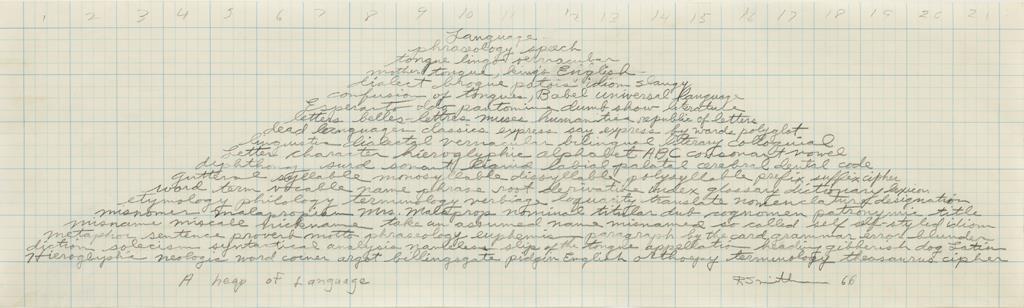 1 2 3 4 5 6 7 8 9 10 11 12 13 14 15 16 17 18 19 20 21
Language
phraseology speech
tongue lingo vernacular
mother tongue, king's English
dialect brogue patois idiom slangy
confusion of tongues, Babel universal language
Esperanto olog pantomime dumb show literature
letters belles-lettres muses humanities republic of letters
dead languages classics express say express by words polyglot
linguistic dialectal vernacular bilingual literary colloquial
letter character hieroglyphic alphabet ABC consonant vowel
diphthong surd sonant liquid labial palatal cerebral dental code
guttural syllable monosyllable dissyllable polysyllable prefix suffix cipher
word term vocable name phrase root derivative index glossary dictionary lexicon
etymology philology terminology verbiage loquacity translate nomenclature designation
misnomer malapropism Mrs. Malaprop nominal titular dub cognomen patronymic title
misname miscall nickname take an assumed name misnamed so called self styled idiom
metaphor sentence proverb motto phraseology euphemism paragraph by the card grammar error blunder
diction solecism syntactical analysis nameless slip of the tongue appellation heading gibberish dog Latin
Hieroglyphic neologic word coiner argot billingsgate pidgin English orthoepy terminology thesaurus cipher
A heap of Language
R. Smithson 66